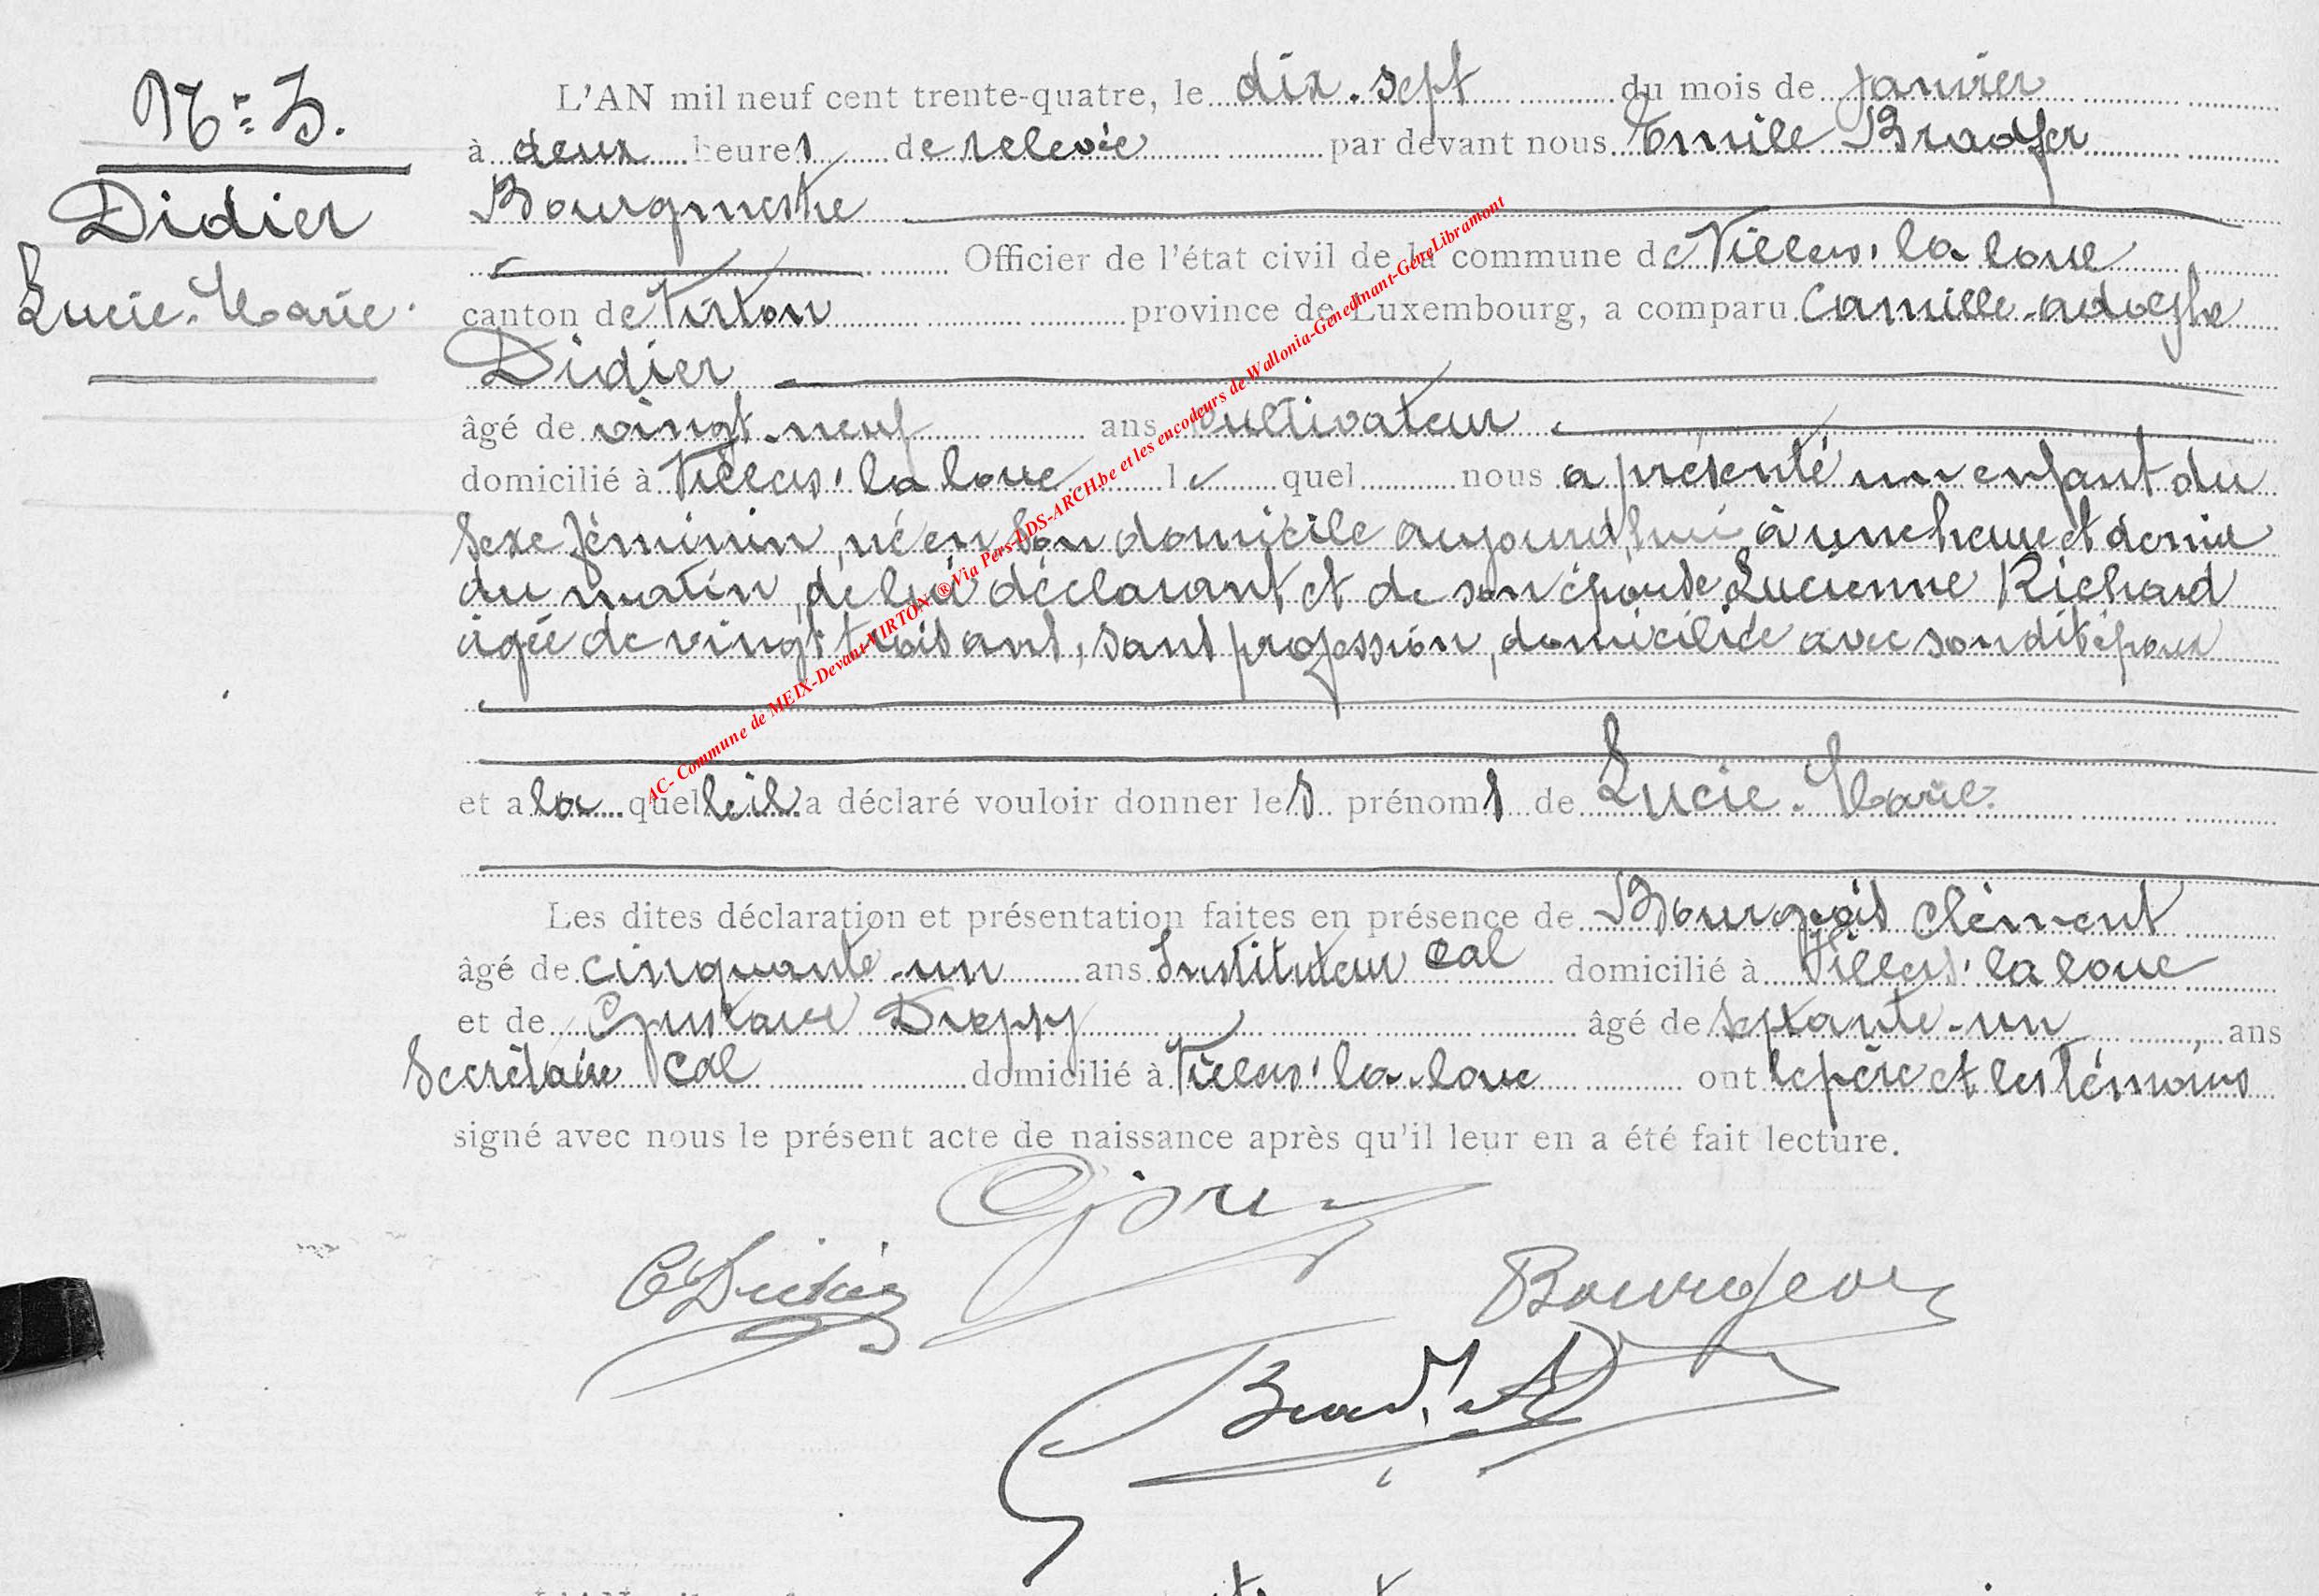 N° 3.
Didier
Lucie-Marie.
L'AN mil neuf cent trente-quatre, le dix-sept du mois de janvier
à deux heures de relevée par devant nous Emile Bradfer
Bourgmestre
Officier de l'état civil de la commune de Villers-la-loue
canton de Virton province de Luxembourg, a comparu Camille-adolphe
Didier
âgé de vingt-neuf ans cultivateur
domicilié à Villers-la loue lequel nous a présenté un enfant du
sexe féminin, né en son domicile aujourd'hui à une heure et demie
du matin, de lui déclarant et de son épouse Lucienne Richard
âgée de vingt trois ans, sans profession, domiciliée avec son dit époux
et a la quelle il a déclaré vouloir donner les prénoms de Lucie-Marie.
Les dites déclaration et présentation faites en présence de Bourgeois Clément
âgé de cinquante-un ans Instituteur Cal domicilié à Villers-la loue
et de Gustave âgé de septante-un, ans
Secrétaire Cal domicilié à Villers-la-loue ont le père et les témoins
signé avec nous le présent acte de naissance après qu'il leur en a été fait lecture.
C Didier
Bourgeois
AC- Commune de MEIX-Devant-VIRTON ® Via Pers-LDS-ARCH.be et les encodeurs de Wallonia-Genedinant-GeneLibramont